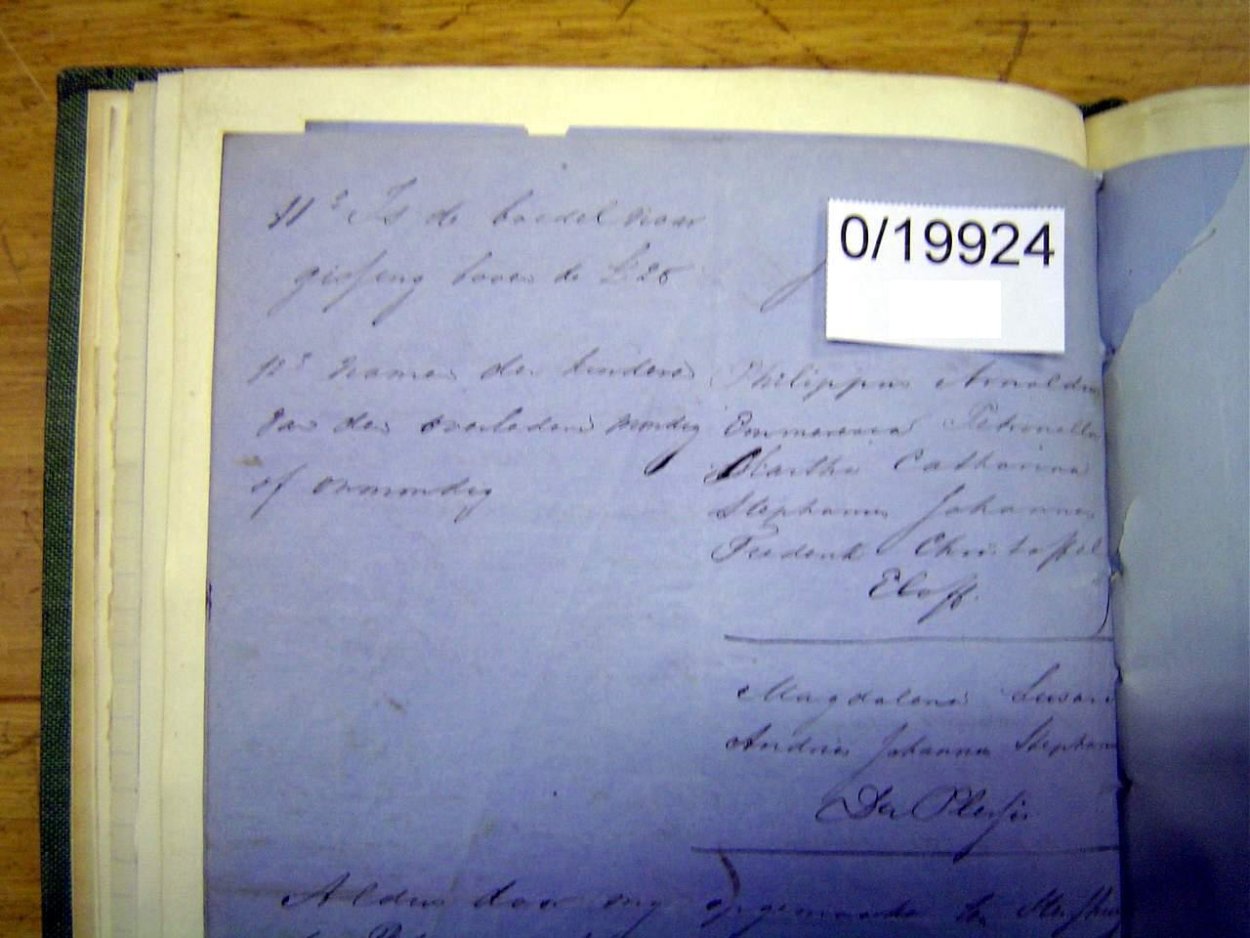 0/19924
11e Is de boedel naar
gissing boven de £ 20
12e Namen der kinderen
van den overledene mondig
of onmondig
Philippus Arnoldus
Emmerencia Petronella
Martha Catharina
Stephanus Johannes
Frederik Christoffel
Eloff.
Magdalena Susan
Andries Johannes Stephan
Du Plessis
Aldus door my opgemaakt